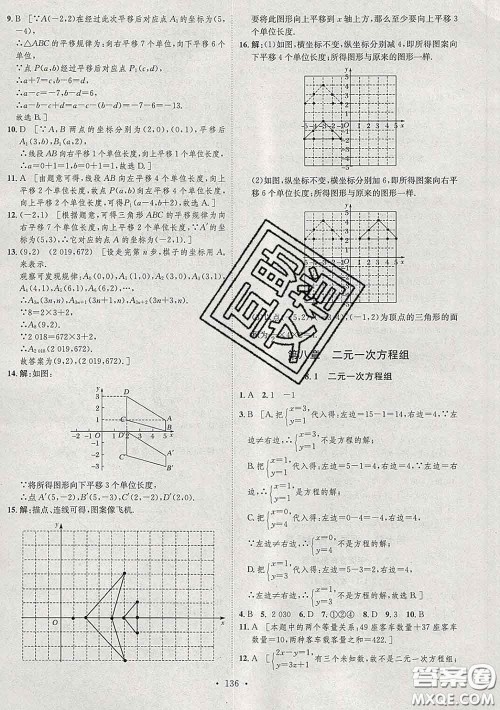 9. B [∵A(-2,2)在经过此次平移后对应点A₁的坐标为(5,
-4),∴△ABC的平移规律为:向右平移7个单位,向下平移6个
单位,
∵点P(a,b)经过平移后对应点P₁(c,d),
∴a+7=c,b-6=d,
∴a-c=-7,b-d=6,
∴a-b-c+d=a-c-(b-d)=-7-6=-13.
故选B.]
10. D [∵A,B两点的坐标分别为(2,0),(0,1),平移后
A₁(3,b),B₁(a,2),
∴线段AB向右平移1个单位长度,向上平移1个单位长度,
∴a=0+1=1,b=0+1=1,∴a+b=2.故选D.]
11. A
12. (-2,1) [根据题意,可得三角形ABC的平移规律为向
右平移7个单位长度,向上平移3个单位长度,∵A′的坐
标为(5,3),∴它对应的点A的坐标为(-2,1).]
13. (9,2) (2 019,672) [设走完第n步,棋子的坐标用Aₙ
来表示.
∵8=2×3+2,
∵2 018=672×3+2,
∴A₂₀₁₈(2 019,672).
故答案为(9,2)(2 019,672).]
14. 解:如图:
y
4
3
2
1
-2 -1 O 1 2 3 4 5 x
-1
-2
A
B
C
D
A′
B′
∵将所得图形向下平移3个单位长度,
∴点A′(5,-2),B′(5,-3),C′(2,-2),D′(2,0).
15. 解:描点、连线可得,图案像飞机.
y
O
x
· 136 ·
要将此图形向上平移到x轴上方,那么至少要向上平移3
个单位长度.
16. 解:(1)如图,横坐标不变,纵坐标分别减4,即所得图案向
下平移4个单位长度;所得图形与原来的图形一样.
(2)如图,纵坐标不变,横坐标分别加6,即所得图案向右平
移6个单位长度;所得图形与原来的图形一样.
为顶点的三角形的面
第八章 二元一次方程组
8.1 二元一次方程组
1. A 2. 1 -1
3. B [A.把{x=3,y=1代入得:左边=15-1=14,右边=2,∵左
边≠右边,∴{x=3,y=1不是方程的解;
B.把{x=1,y=1代入得:左边=5-1=4,右边=4,∵左边=右
边,∴{x=1,y=1是方程的解;
C.把{x=0,y=4代入得:左边=0-4=-4,右边=4,
∵左边≠右边,∴{x=0,y=4不是方程的解;
D.把{x=1,y=3代入得:左边=5-3=2,右边=4,
∵左边≠右边,∴{x=1,y=3不是方程的解.]
4. B 5. 2 030 7. ①②④ 8. D 9. 3 10. B
11. A [本题中的两个等量关系:49座客车数量+37座客车
数量=10,两种客车载客量之和=422.]
12. A [{2x-y=1,y=3z+1有三个未知数,故不是二元一次方程组;